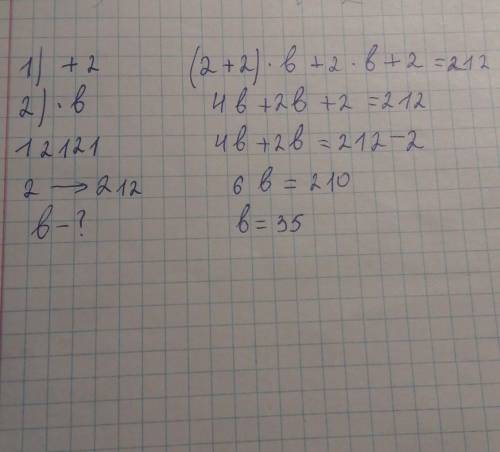 1) +2
2) · b
12121
2 → 212
b - ?
(2+2) · b + 2 · b + 2 = 212
4b + 2b + 2 = 212
4b + 2b = 212 - 2
6 b = 210
b = 35